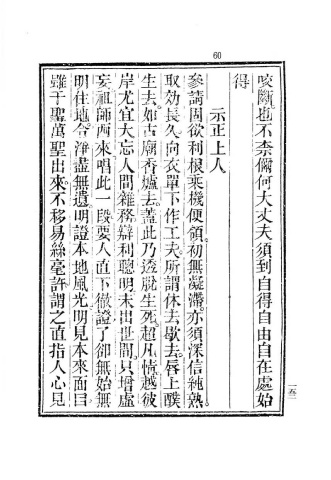 60
咬斷也不柰儞何大丈夫須到自得自由自在處始
得
示正上人
參請固欲利根乘機便領初無凝滯亦須深信純熟
取効長久向衣單下作工夫所謂休去歇去唇上醭
生去如古廟香爐去蓋此乃透脫生死超凡情越彼
岸尤宜大忘人間雜務辯利聰明未出世間只增虛
妄祖師西來唱此一段要人直下徹證了卻無始無
明住地令淨盡無遺明證本地風光明見本來面目
雖千聖萬聖出來不移易絲毫許謂之直指人心見